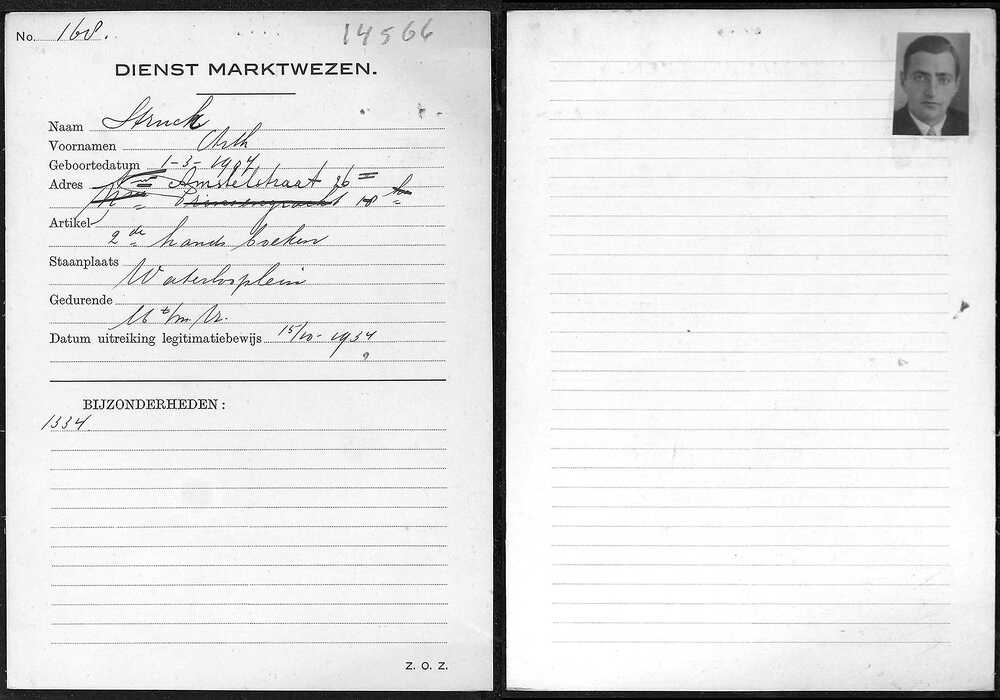 No. 168. 14566
DIENST MARKTWEZEN.
Naam Struck
Voornamen Arth
Geboortedatum 1-3-1907
Adres Amstelstraat 36 II
Prinsengracht 18
Artikel
2de hands boeken
Staanplaats
Waterlooplein
Gedurende
M t/m Vr.
Datum uitreiking legitimatiebewijs 15/10-1934
BIJZONDERHEDEN:
1334
Z. O. Z.